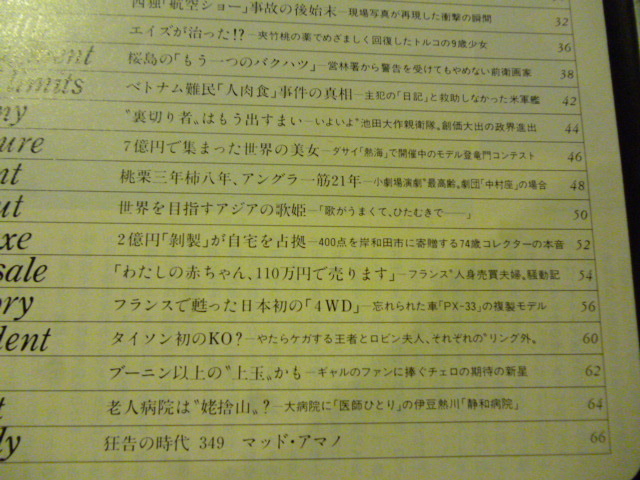 西独「航空ショー」事故の後始末―現場写真が再現した衝撃の瞬間 32
エイズが治った!?―夾竹桃の薬でめざましく回復したトルコの9歳少女 36
桜島の「もう一つのバクハツ」―営林署から警告を受けてもやめない前衛画家 38
limits
ベトナム難民「人肉食」事件の真相―主犯の「日記」と救助しなかった米軍艦 42
ny
〝裏切り者〟はもう出すまい―いよいよ〝池田大作親衛隊〟創価大出の政界進出 44
ure
7億円で集まった世界の美女―ダサイ「熱海」で開催中のモデル登竜門コンテスト 46
nt
桃栗三年柿八年、アングラ一筋21年―小劇場演劇〝最高齢〟劇団「中村座」の場合 48
ut
世界を目指すアジアの歌姫―「歌がうまくて、ひたむきで――」 50
xe
2億円「剝製」が自宅を占拠―400点を岸和田市に寄贈する74歳コレクターの本音 52
sale
「わたしの赤ちゃん、110万円で売ります」―フランス〝人身売買夫婦〟騒動記 54
ory
フランスで甦った日本初の「4WD」―忘れられた車「PX-33」の複製モデル 56
dent
タイソン初のKO?―やたらケガする王者とロビン夫人、それぞれの〝リング外〟 60
ブーニン以上の〝上玉〟かも―ギャルのファンに捧ぐチェロの期待の新星 62
t
老人病院は〝姥捨山〟?―大病院に「医師ひとり」の伊豆熱川「静和病院」 64
ly
狂告の時代 349 マッド・アマノ 66